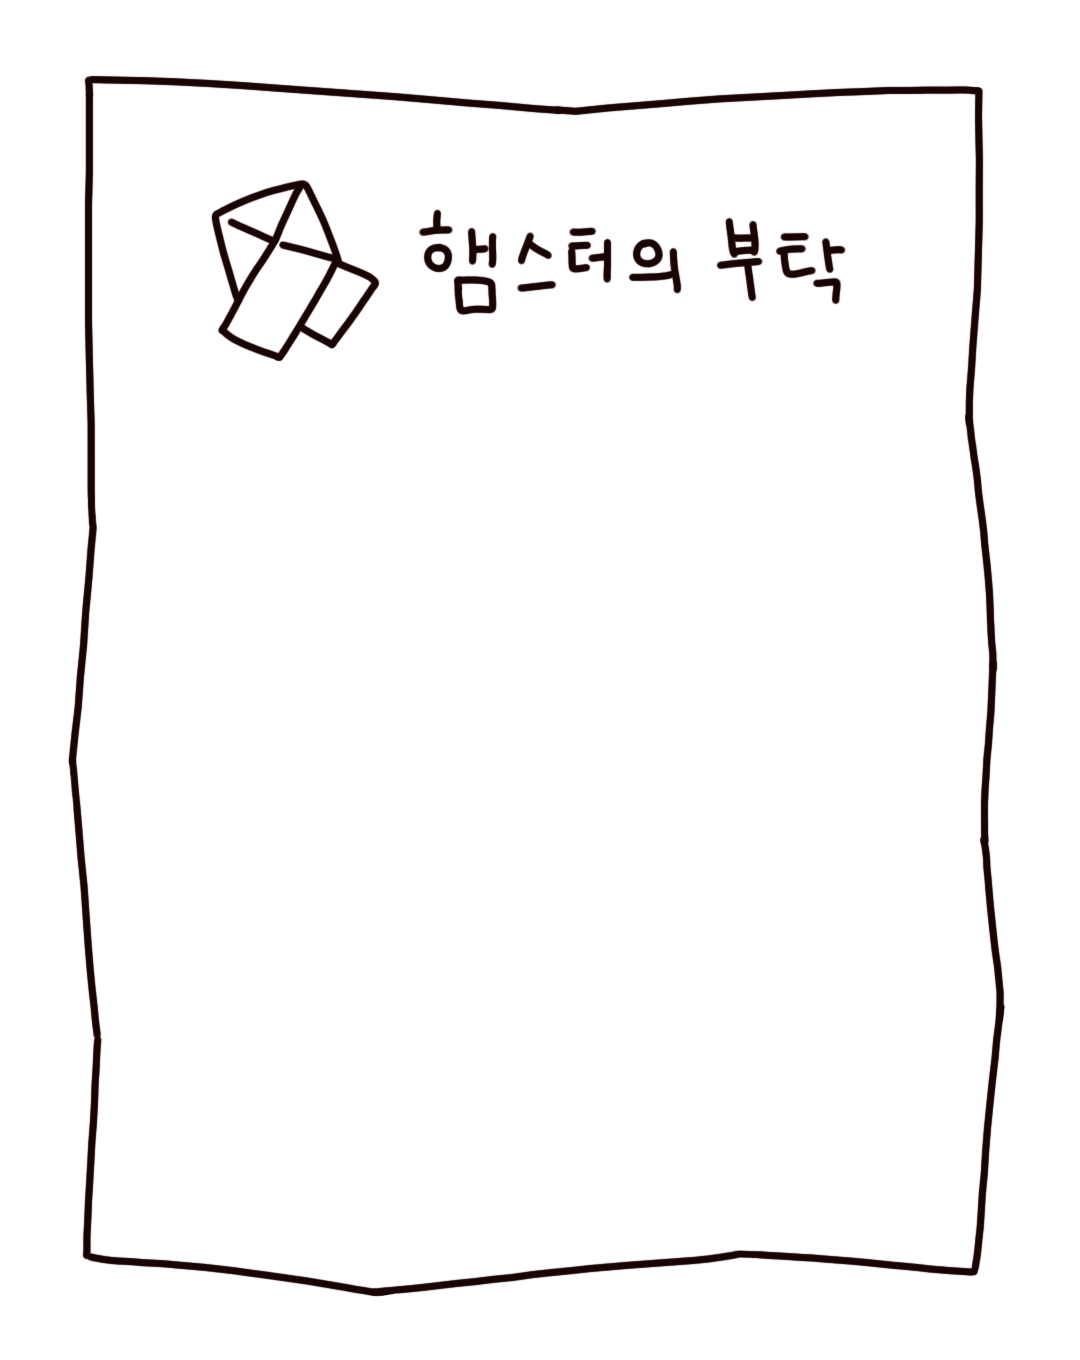 햄스터의 부탁